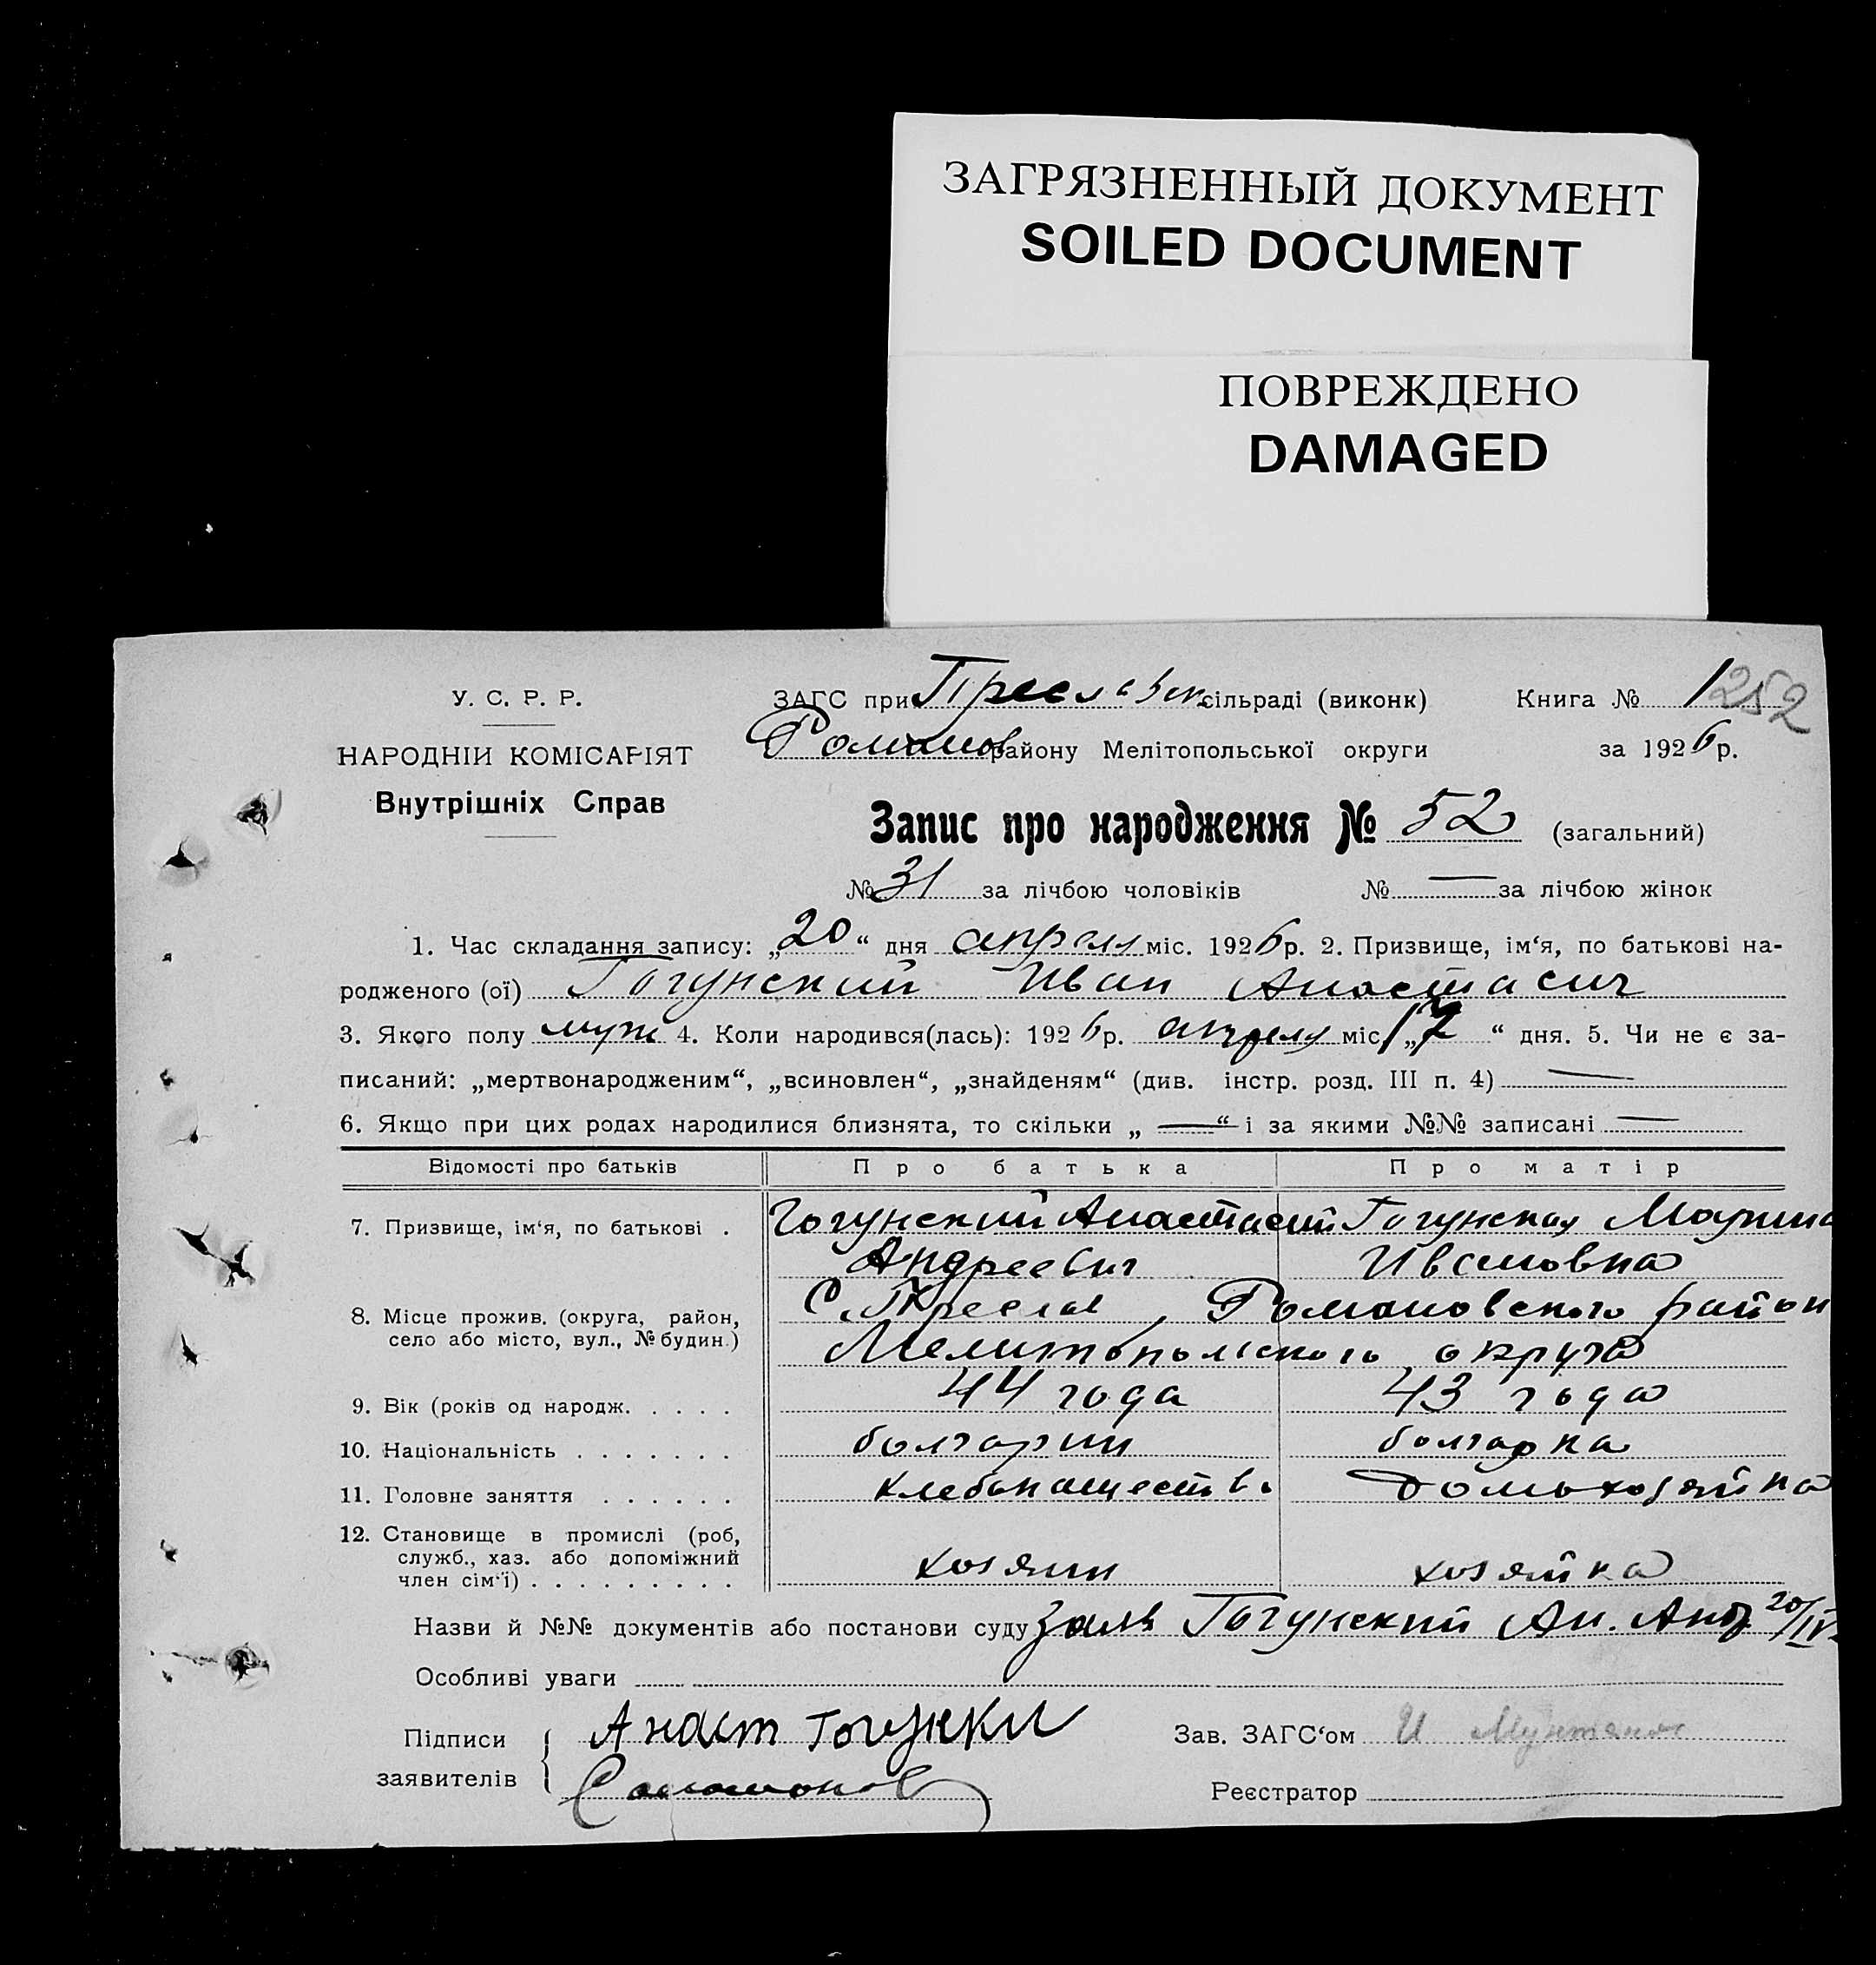 ЗАГРЯЗНЕННЫЙ ДОКУМЕНТ
SOILED DOCUMENT
ПОВРЕЖДЕНО
DAMAGED
У. С. Р. Р.
НАРОДНІЙ КОМІСАРІЯТ
Внутрішніх Справ
ЗАГС при Преславск сільраді (виконк) Книга № 1 252
Романов району Мелітопольської округи за 1926 р.
Запис про народження № 52 (загальний)
№ 31 за лічбою чоловіків № — за лічбою жінок
1. Час складання запису: „20“ дня апреля міс. 1926 р. 2. Призвище, ім‘я, по батькові на-
родженого (ої) Гогунский Иван Анастасич
3. Якого полу муж 4. Коли народився(лась): 1926 р. апреля міс „17“ дня. 5. Чи не є за-
писаний: „мертвонародженим“, „всиновлен“, „знайденям“ (див. інстр. розд. III п. 4) —
6. Якщо при цих родах народилися близнята, то скільки „—“ і за якими №№ записані —
Відомості про батьків Про батька Про матір
7. Призвище, ім‘я, по батькові . Гогунский Анастасий Гогунская Марина
Андреевич Ивановна
8. Місце прожив. (округа, район, село або місто, вул., № будин.) С. Преслав, Романовского район
Мелитопольского округа
9. Вік (років од народж. . . . . 44 года 43 года
10. Національність . . . . . . . болгарин болгарка
11. Головне заняття . . . . . . хлебопашество домохозяйка
12. Становище в промислі (роб,
служб., хаз. або допоміжний
член сім‘ї) . . . . . . . . . хозяин хозяйка
Назви й №№ документів або постанови суду Заяв Гогунский Ан. Анд 20/IV
Особливі уваги
Підписи заявителів Анаст Гогунки Зав. ЗАГС‘ом И
Реєстратор